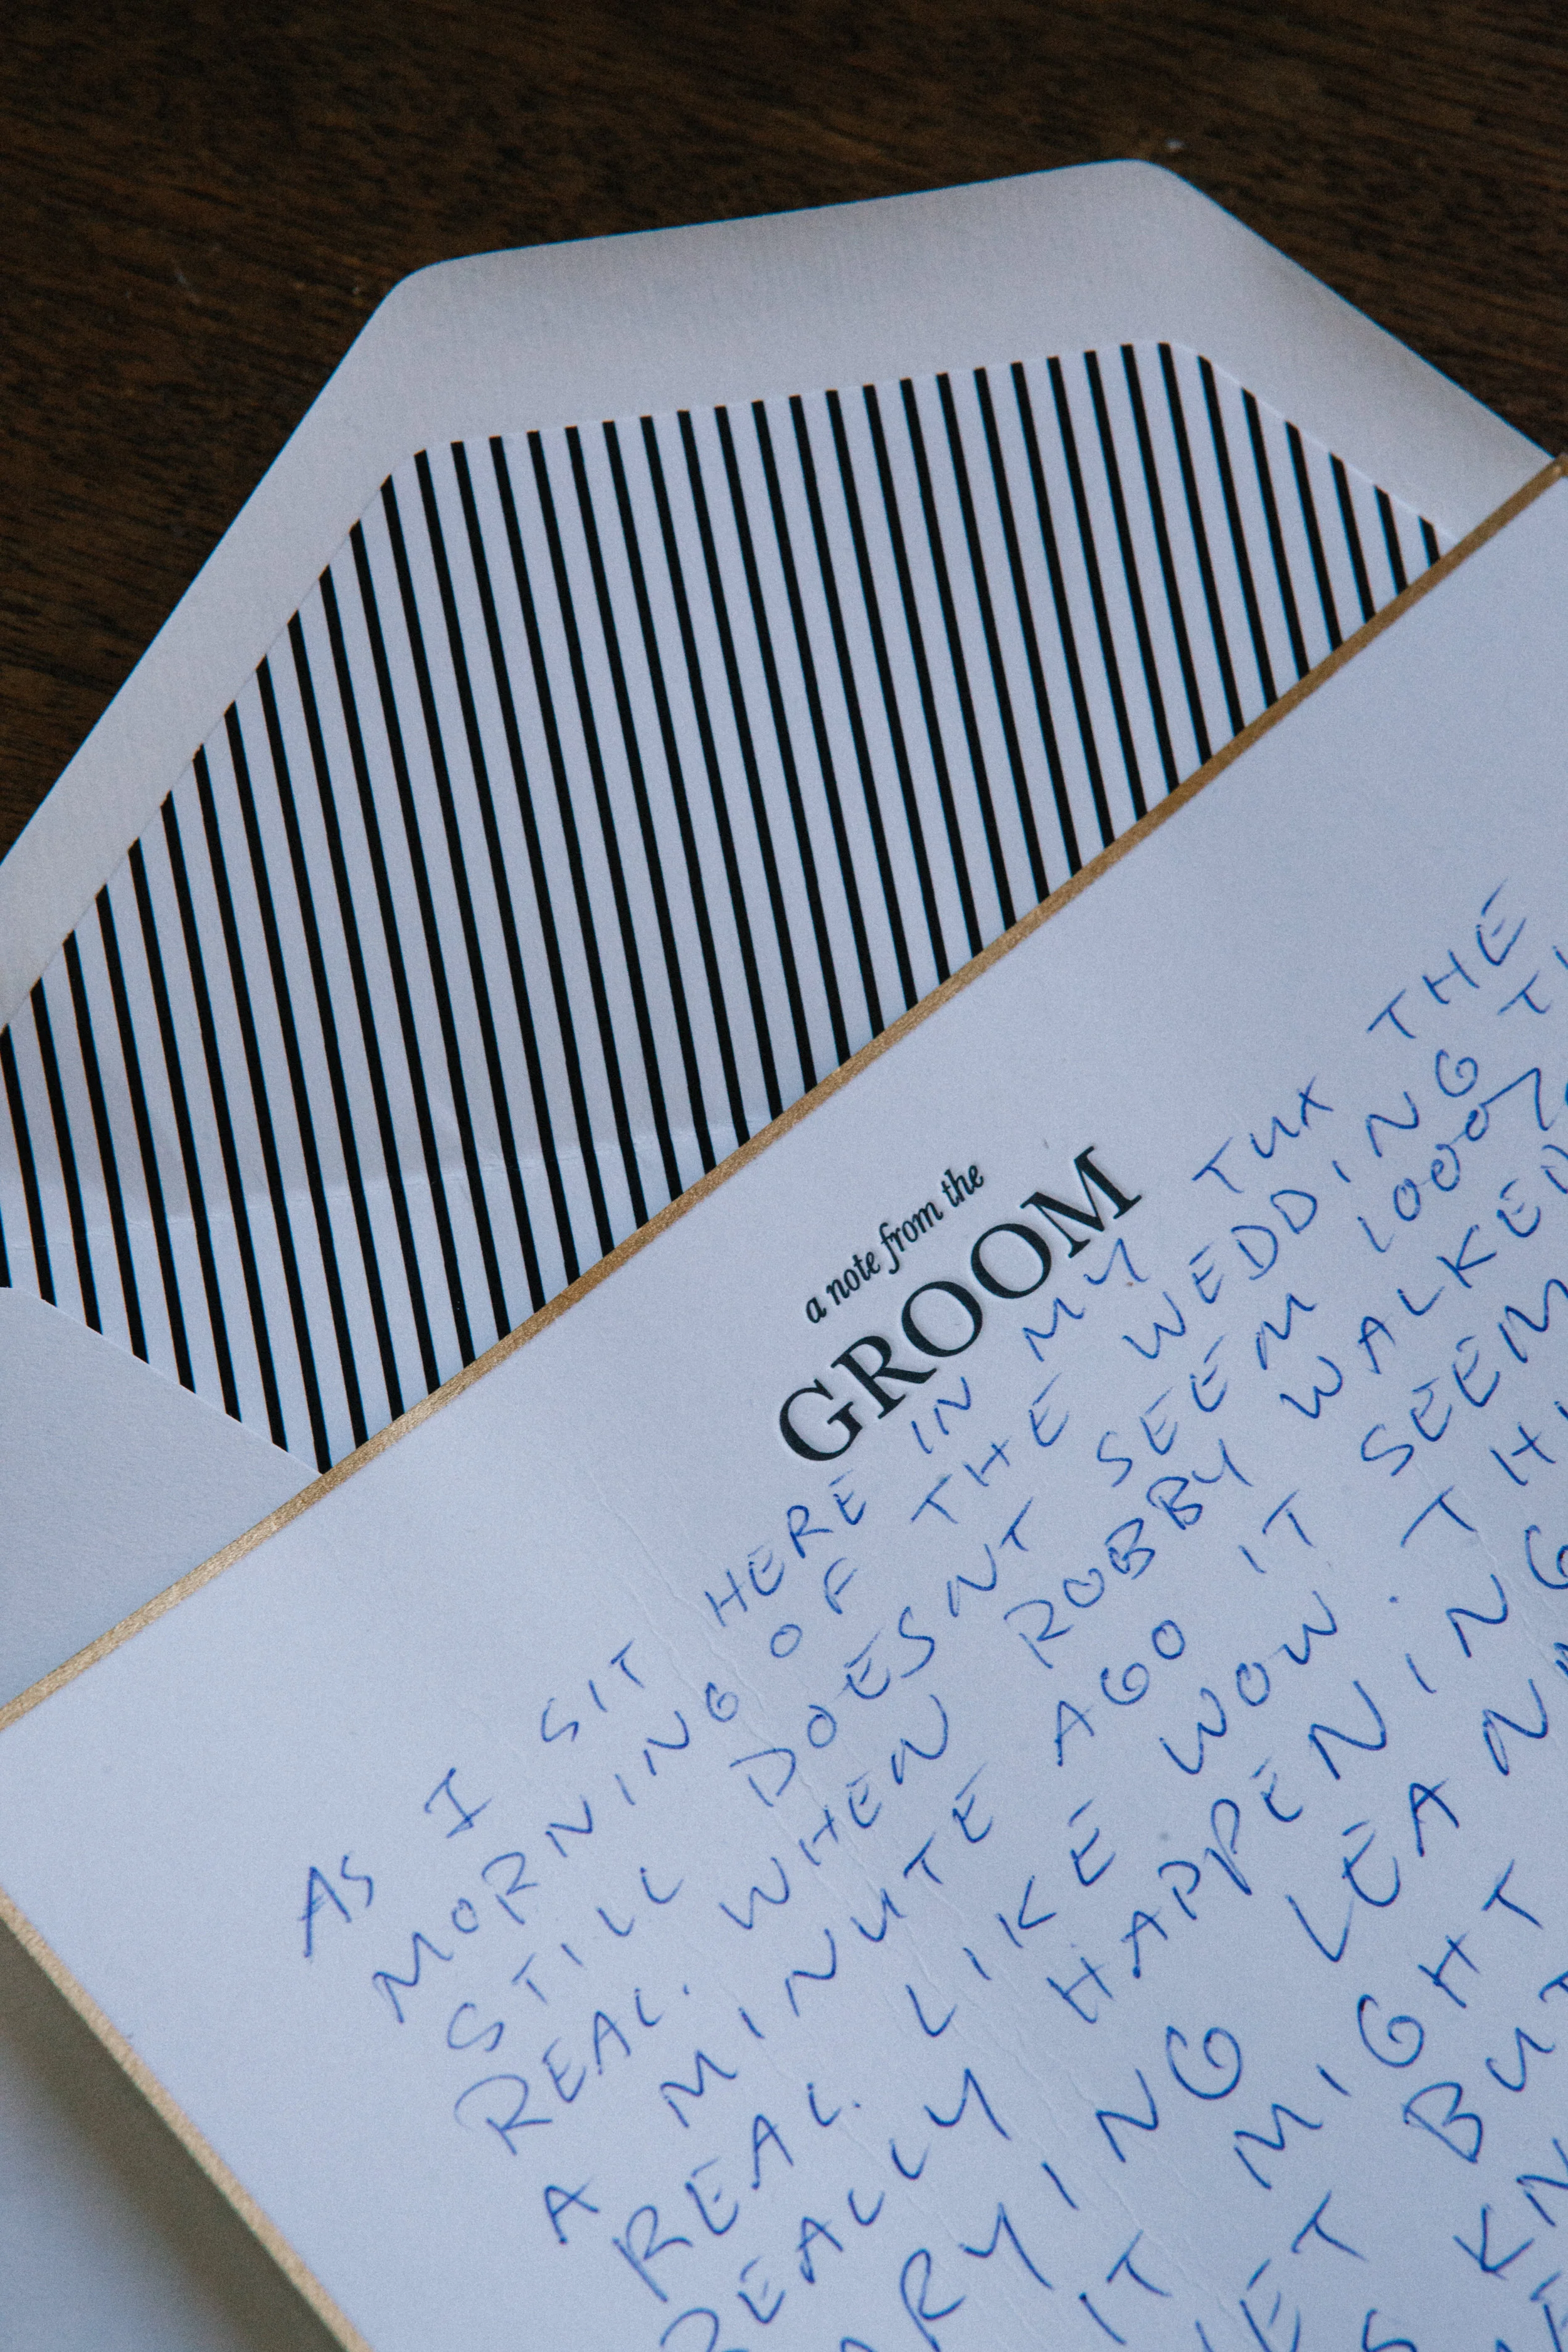 a note from the
GROOM
AS I SIT HERE IN MY TUX THE
MORNING OF THE WEDDING
STILL DOESNT SEEM 100%
REAL. WHEN ROBBY WALKED
A MINUTE AGO IT SEEM
REAL. LIKE WOW. TH
REALLY HAPPENING
LEAN
IT MIGHT
BUT